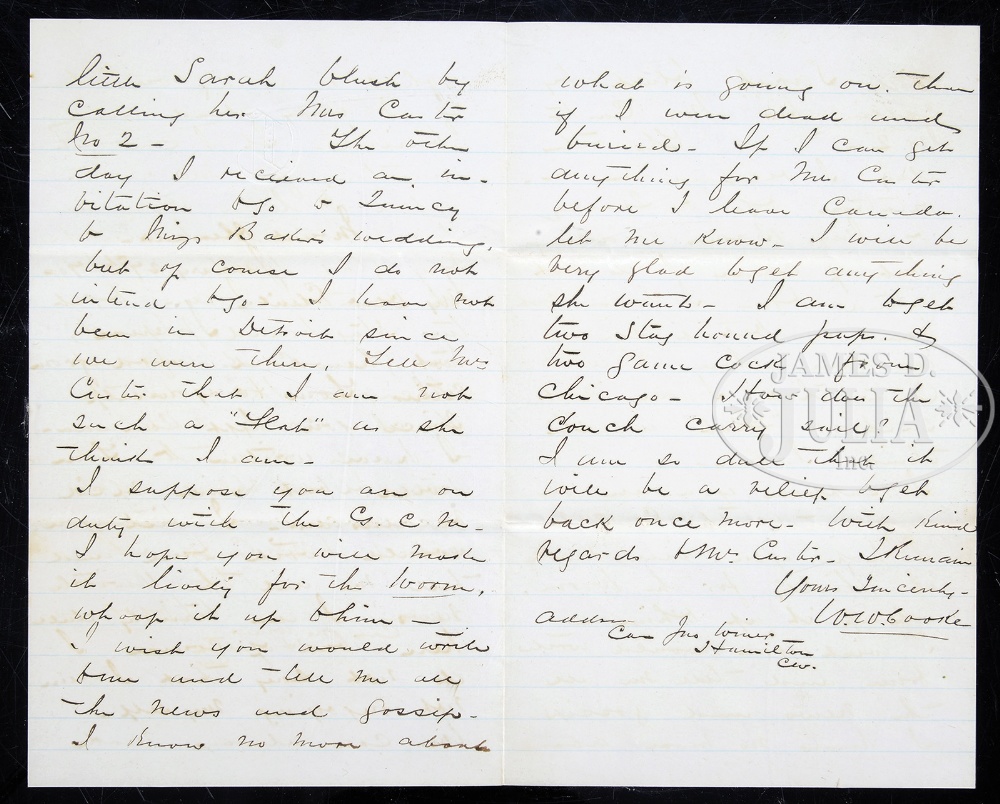 little Sarah blush by
calling her Mrs Custer
No 2 - The other
day I recieved an in-
vitation to go to Quincy
to Miss Baker's wedding,
but of course I do not
intend to go - I have not
been in Detroit since
we were there, Tell Mrs
Custer that I am not
such a "flat" as she
thinks I am -
I suppose you are on
duty with the G. C. M. -
I hope you will make
it lively for the Worm,
whoop it up to him -
I wish you would write
to me and tell me all
the news and gossip -
I know no more about
what is going on. than
if I were dead and
buried - If I can get
anything for Mrs Custer
before I leave Canada.
let me know - I will be
very glad to get anything
she wants - I am to get
two Stag hound pups. &
two game cocks from
Chicago - How does the
Couch carry sail?
I am so dull that it
will be a relief to get
back once more - With kind
regards to Mrs Custer - I Remain
Yours Sincerely -
W. W. Cooke
address
Care Jno Winer
Hamilton
C.W.
JAMES D.
JULIA
Inc.